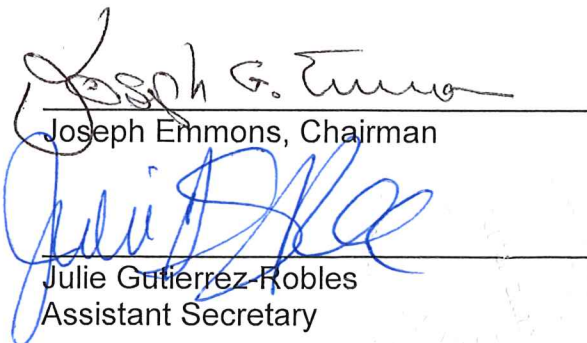 Joseph G. Emmons
Joseph Emmons, Chairman
Julie Gutierrez-Robles
Assistant Secretary